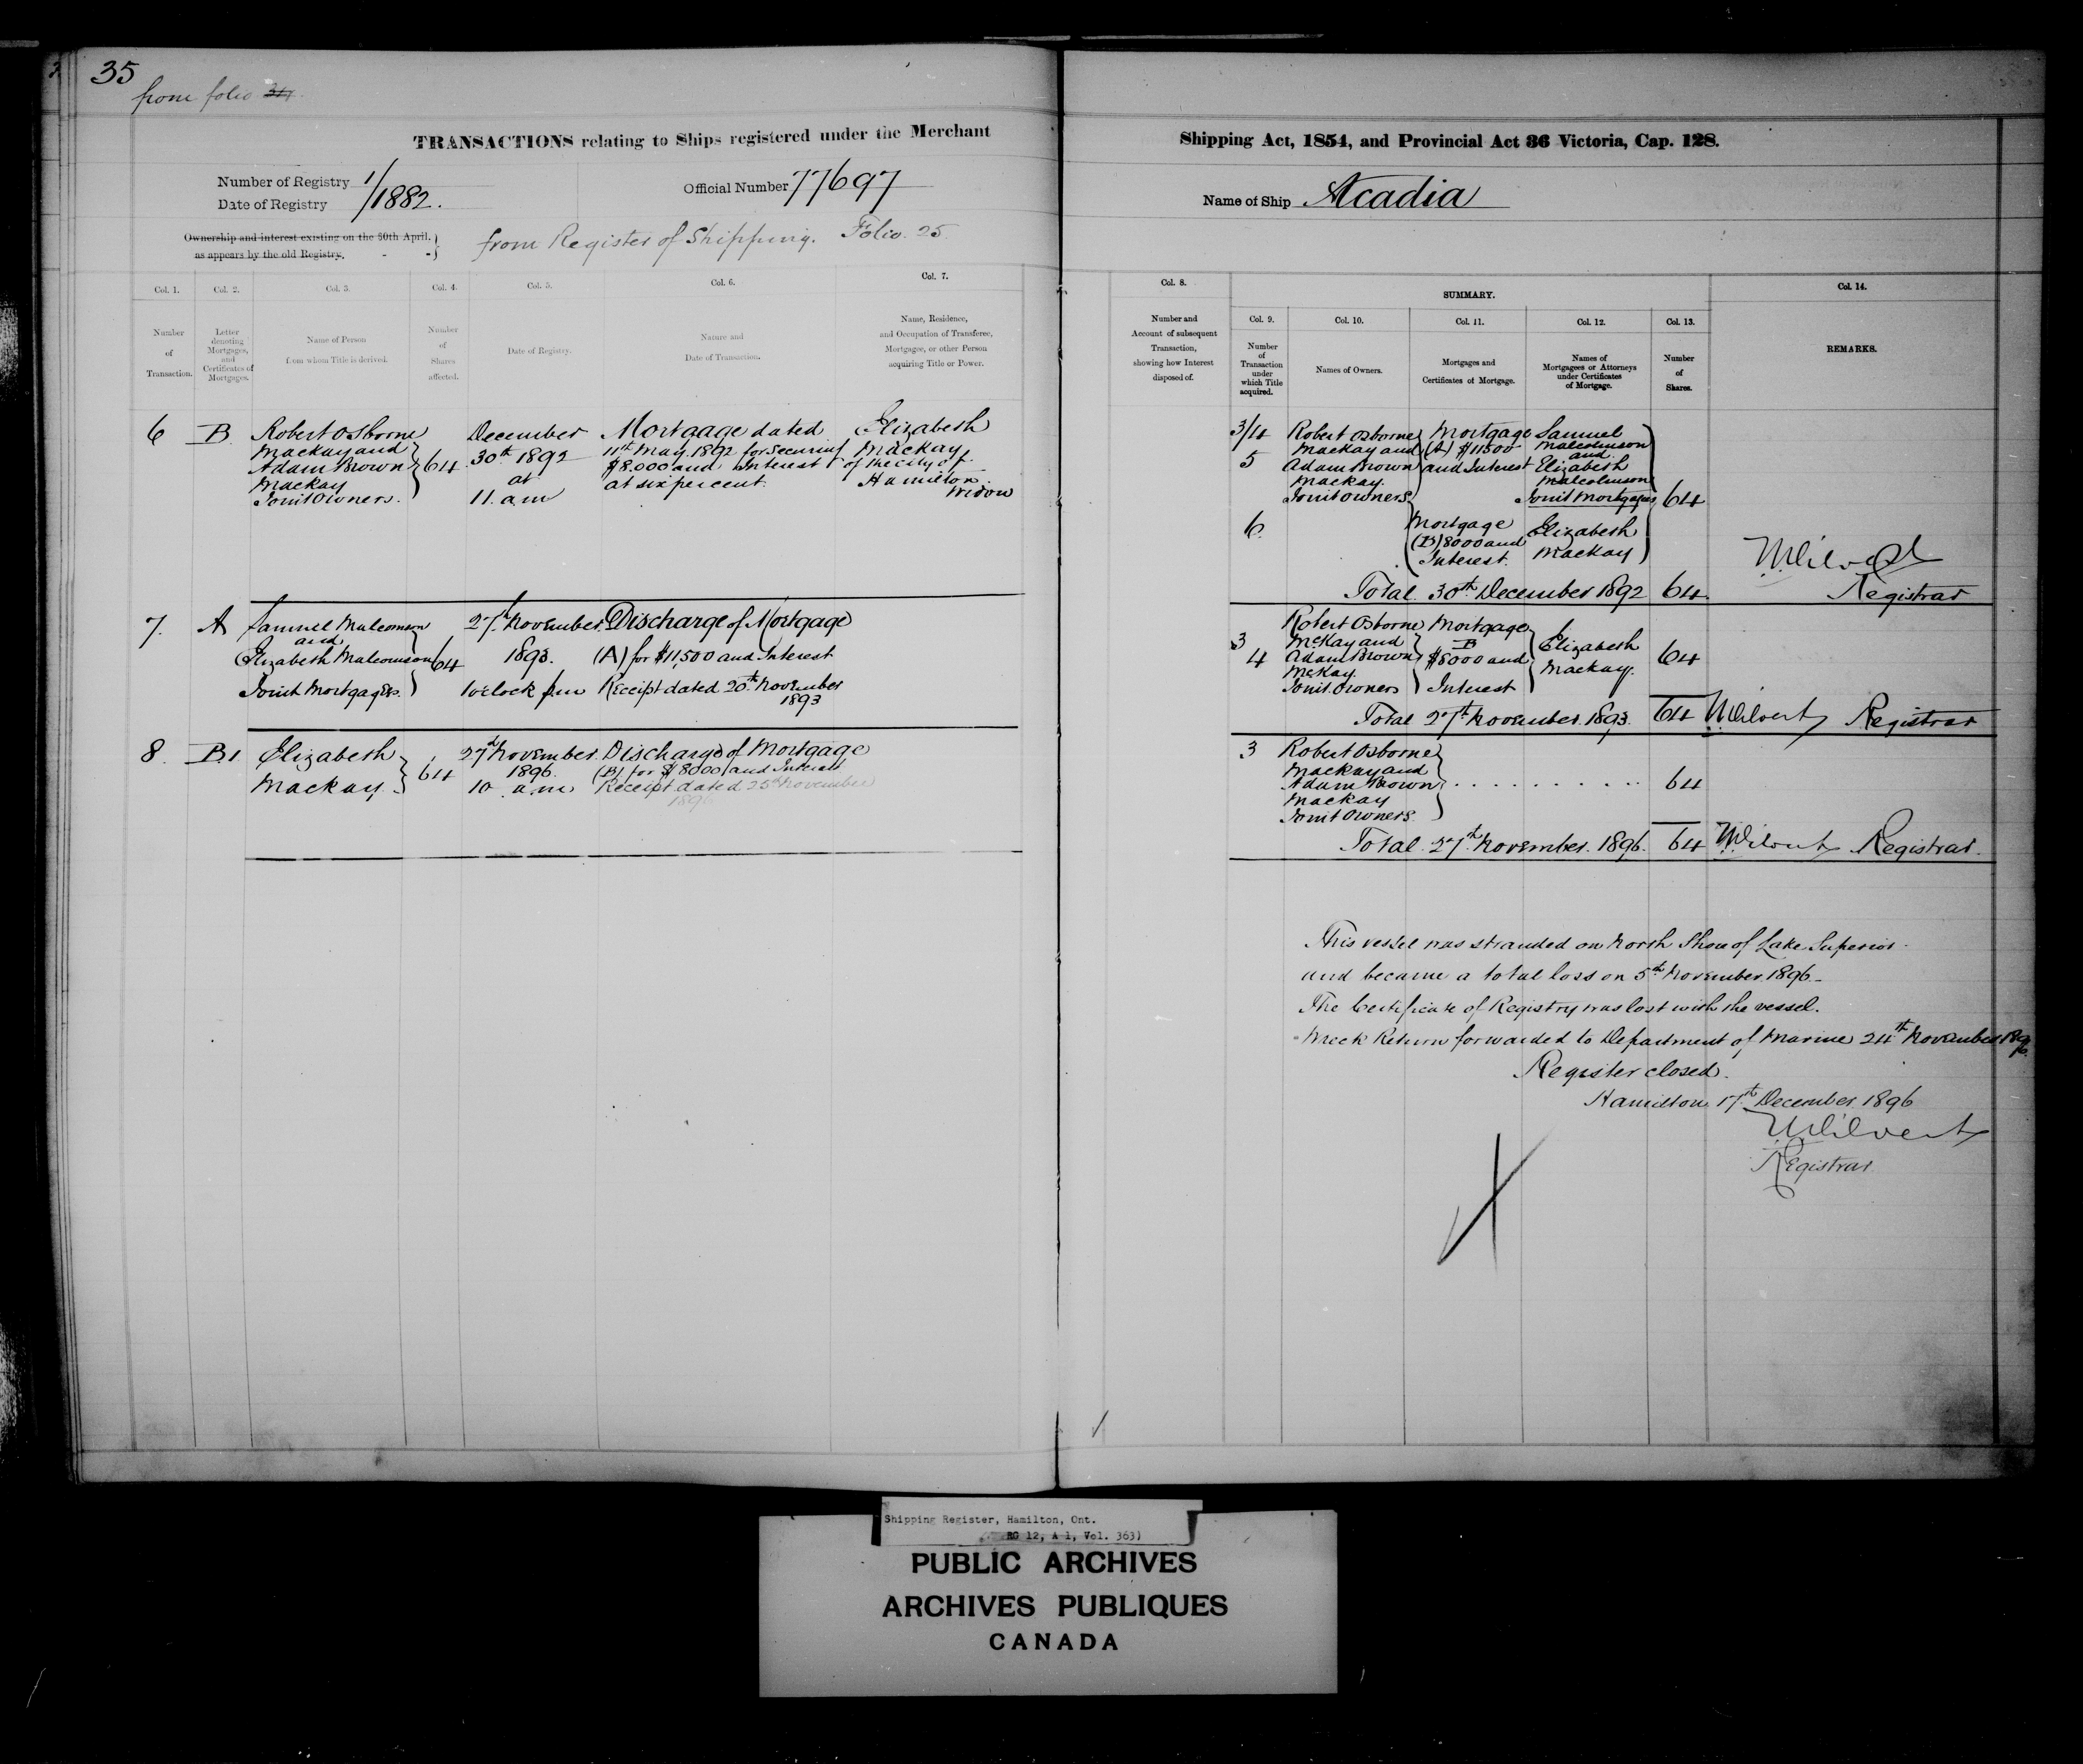 35
from folio
TRANSACTIONS relating to Ships registered under the Merchant
Number of Registry 1/
Date of Registry /1882.
Official Number 77697
Ownership and interest existing on the 30th April.
as appears by the old Registry.
from Register of Shipping. Folio. 25
Col. 1.
Number
of
Transaction.
Col. 2.
Letter
denoting
Mortgages,
and
Certificates of
Mortgages.
Col. 3.
Name of Person
from whom Title is derived.
Col. 4.
Number
of
Shares
affected.
Col. 5.
Date of Registry.
Col. 6.
Nature and
Date of Transaction.
Col. 7.
Name, Residence,
and Occupation of Transferee,
Mortgagee, or other Person
acquiring Title or Power.
6
B
Robert Osborne
Mackay and
Adam Brown
Mackay
Joint Owners.
64
December
30th 1892
at
11. a.m
Mortgage dated
11th May. 1892 for securing
$8.000 and Interest
at six per cent.
Elizabeth
Mackay
of the city of
Hamilton.
Widow
7.
A
Samuel Malcomson
and
Elizabeth Malcomson
Joint Mortgagees.
64
27th November.
1893.
1 o'clock pm
Discharge of Mortgage
(A) for $11,500 and Interest
Receipt dated 20th November
1893
8.
B.1
Elizabeth
Mackay
64
27th November.
1896.
10 a.m
Discharge of Mortgage
(B) for $8000 and Interest
Receipt dated 25th November
1896
Shipping Act, 1854, and Provincial Act 36 Victoria, Cap. 128.
Name of Ship Acadia
Col. 8.
Number and
Account of subsequent
Transaction,
showing how Interest
disposed of.
SUMMARY.
Col. 9.
Number
of
Transaction
under
which Title
acquired.
Col. 10.
Names of Owners.
Col. 11.
Mortgages and
Certificates of Mortgage.
Col. 12.
Names of
Mortgagees or Attorneys
under Certificates
of Mortgage.
Col. 13.
Number
of
Shares.
Col. 14.
REMARKS.
3/4
5
Robert Osborne
Mackay and
Adam Brown
Mackay.
Joint Owners
Mortgage
(A) $11500
and Interest
Samuel
Malcolmson
and
Elizabeth
Malcolmson
Joint Mortgagees
64
6
Mortgage
(B) 8000 and
Interest.
Elizabeth
Mackay
Total 30th December 1892 64
Registrar
3
4
Robert Osborne
McKay and
Adam Brown
McKay.
Joint Owners
Mortgage
B
$8000 and
Interest
Elizabeth
Mackay.
64
Total 27th November. 1893. 64
Registrar
3
Robert Osborne
Mackay and
Adam Brown
Mackay
Joint Owners
64
Total. 27th November. 1896. 64
Registrar.
This vessel was stranded on North Shore of Lake Superior
and became a total loss on 5th November 1896
The Certificate of Registry was lost with the vessel.
Wreck Return forwarded to Department of Marine 24th November 1896
Register closed.
Hamilton 17th December 1896
Registrar
Shipping Register, Hamilton, Ont.
RG 12, A 1, Vol. 363)
PUBLIC ARCHIVES
ARCHIVES PUBLIQUES
CANADA